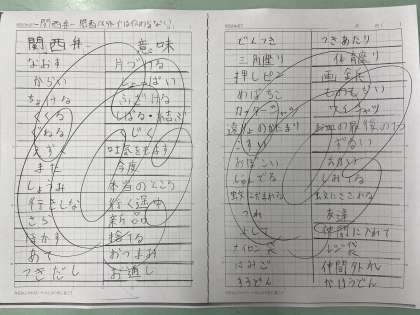 関西弁 意味
なおす 片づける
からい しょっぱい
ちょける ふざける
くくる しばる・結ぶ
ぐねる くじく
えずく 吐き気を
また 今度
しょうみ 本当のところ
行きしな 行く途中
さら 新品
ほかす 捨てる
あて おつまみ
つきだし お通し
でんつき つきあたり
三角座り 体育座り
押しピン 画びょう
めばちこ ものもらい
カッターシャツ ワイシャツ
遠りょのかたまり お皿の最後の1つ
こすい ずるい
おぼこい 幼い
しゅんでる しみてる
蚊にかまれる 蚊にさされる
つれ 友達
よして 仲間に入れて
ナイロン袋 レジ袋
はみご 仲間外れ
すうどん かけうどん